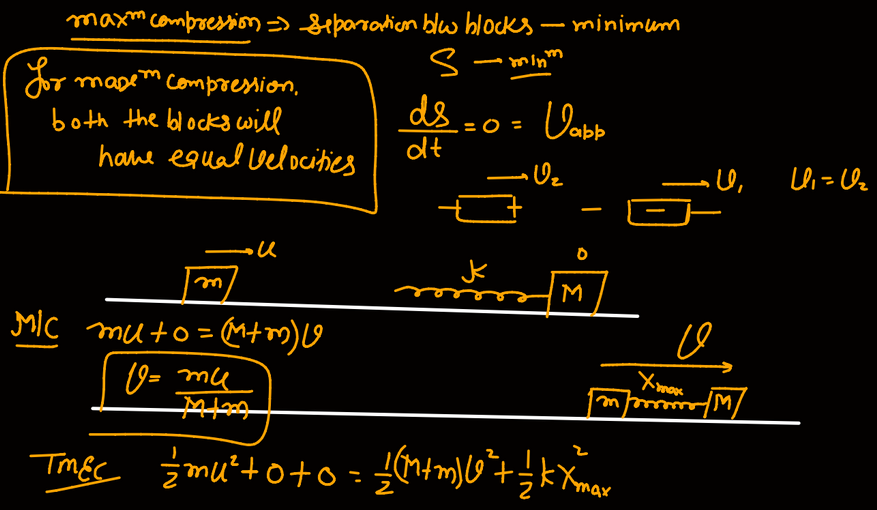 maxᵐ compression ⇒ separation b/w blocks — minimum
S — minᵐ
for maxᵐ compression.
both the blocks will
have equal velocities
ds/dt = 0 = Vapp
V₂
V₁
V₁ = V₂
+ − −
u
m
K
0
M
M/C mu + 0 = (M+m)V
V = mu/(M+m)
V
Xmax
m M
TMEC ½mu² + 0 + 0 = ½(M+m)V² + ½kX²max